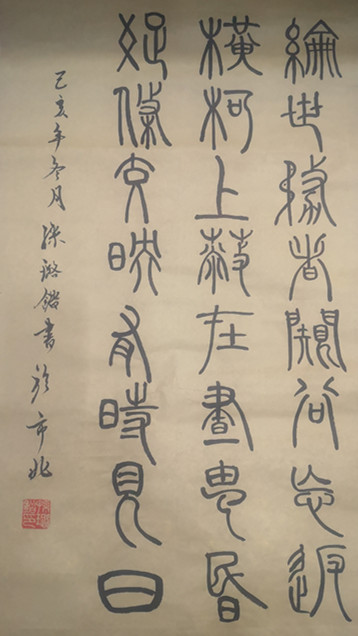 綸世務者闚谷忘返
橫柯上蔽在晝昏
疏條交映有時見日
己亥年冬月梁書於市北